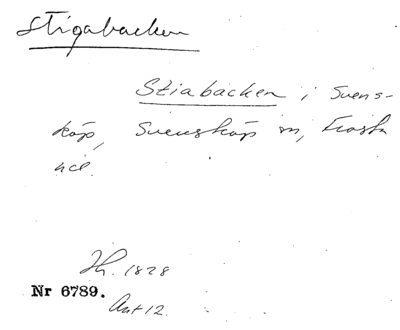 Stigabacken
Stiabacken i Svens-
köp, Svensköp sn, Frosta
hd.
Jh. 1828
Nr 6789.
Akt 12.